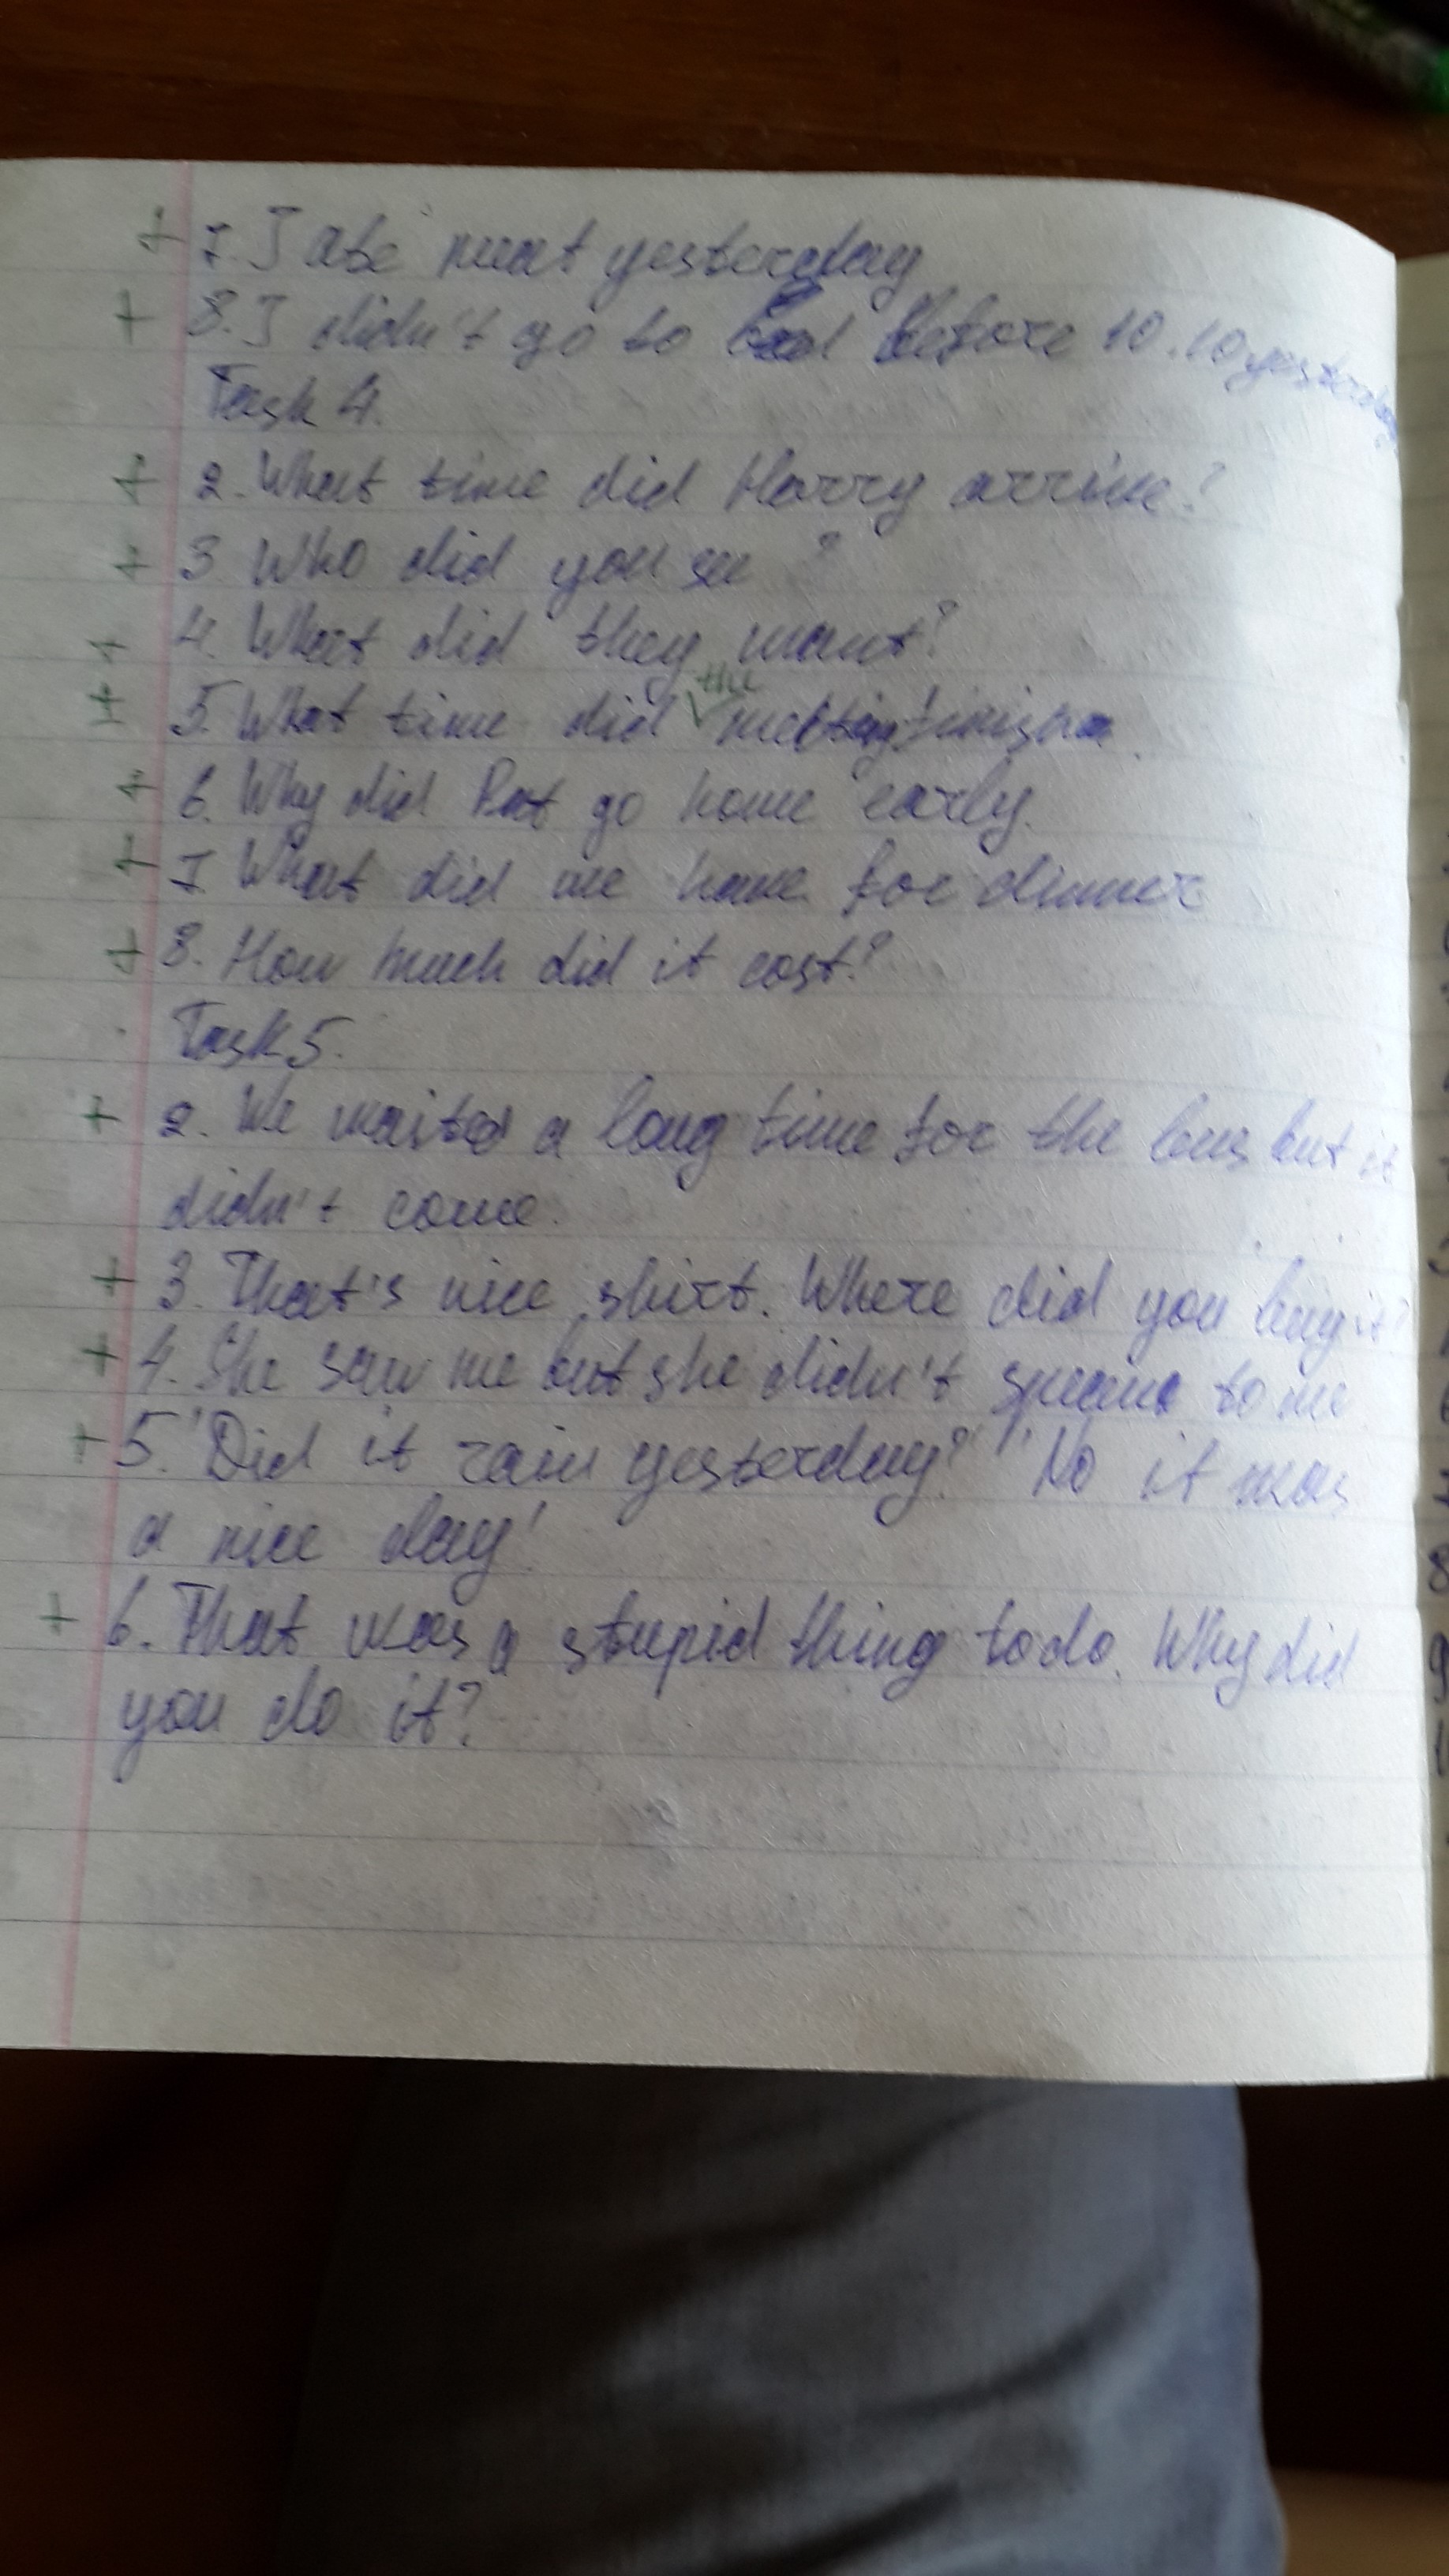 + 7. I ate meat yesterday
+ 8. I didn't go to bed before 10.10 yesterday
Task 4.
+ 2. What time did Harry arrive?
+ 3 Who did you see ?
+ 4. What did they want?
the
+ 5. What time did meeting finish
+ 6. Why did Pat go home early.
+ 7. What did we have for dinner
+ 8. How much did it cost?
Task 5.
+ 2. We waited a long time for the bus but it
didn't come.
+ 3. That's nice shirt. Where did you buy it?
+ 4. She saw me but she didn't to me
+ 5. 'Did it rain yesterday?' 'No it was
a nice day'
+ 6. That was a stupid thing to do. Why did
you do it?